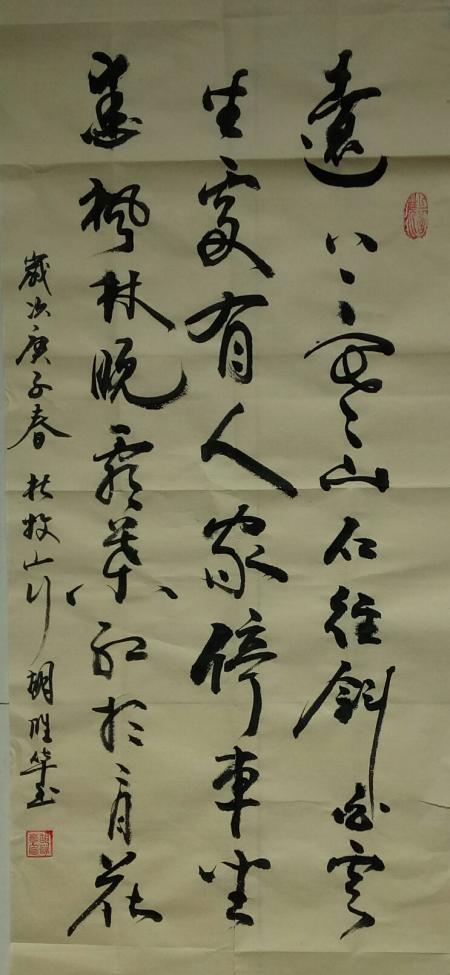 遠上寒山石徑斜白雲
生處有人家停車坐
愛楓林晚霜葉紅於二月花
歲次庚子春 杜牧山行 胡胜华书